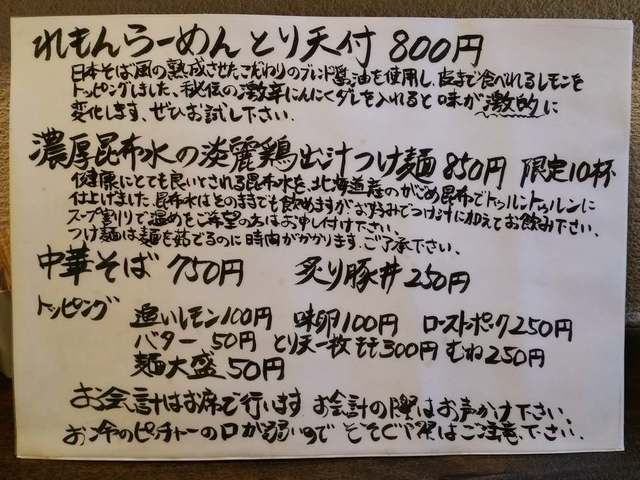 れもんらーめん とり天付 800円
日本そば風の熟成させたこだわりのブレンド醤油を使用し、皮まで食べれるレモンを
トッピングしました、秘伝の激辛にんにくダレを入れると味が激的に
変化します、ぜひお試し下さい、
濃厚昆布水の淡麗鶏出汁つけ麺 850円 限定10杯
健康にとても良いとされる昆布水を、北海道産のがごめ昆布でトゥルントゥルンに
仕上げました、昆布水はそのままでも飲めますが、お好みでつけ汁に加えてお飲み下さい、
スープ割りで温めをご希望の方はお申し付け下さい、
つけ麺は麺を茹でるのに時間がかかります、ご了承下さい、
中華そば 750円 炙り豚丼 250円
トッピング 追いレモン100円 味卵100円 ローストポーク250円
バター 50円 とり天一枚 もも300円 むね250円
麺大盛 50円
お会計はお席で行います、お会計の際はお声かけ下さい、
お冷のピッチャーの口が弱いので そそぐ際はご注意下さい、